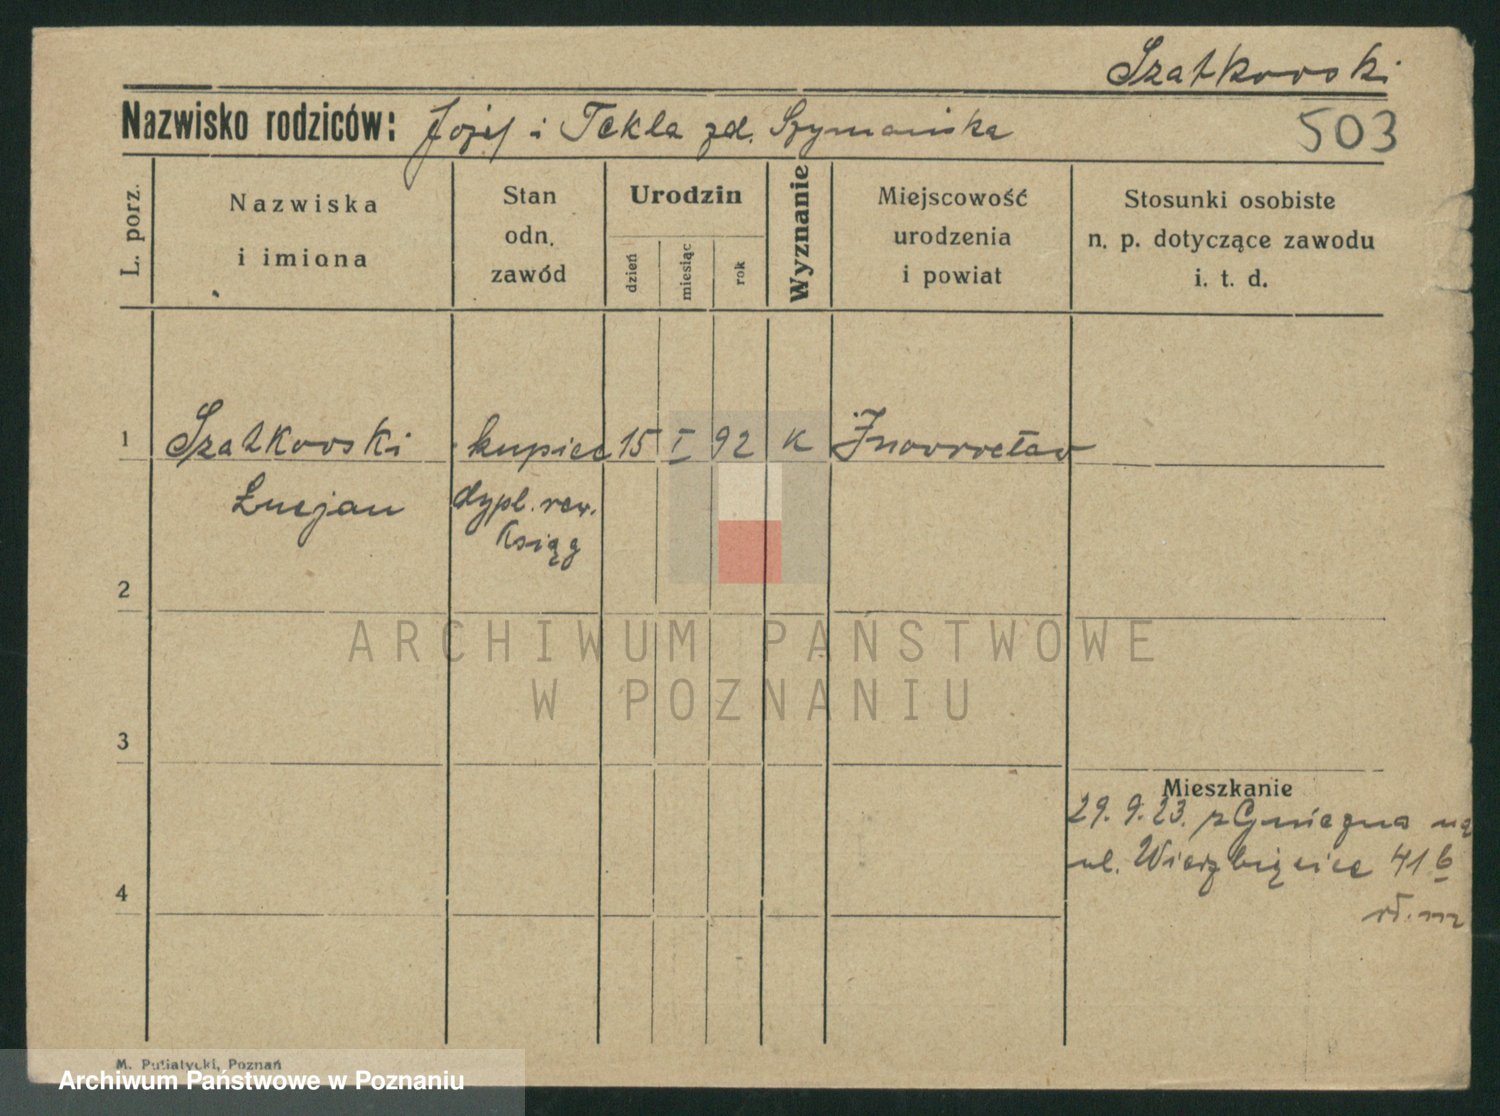 Szatkowski
Nazwisko rodziców: Józef i Tekla zd. Szymańska
503
L. porz.
Nazwiska
i imiona
Stan
odn.
zawód
Urodzin
dzień
miesiąc
rok
Wyznanie
Miejscowość
urodzenia
i powiat
Stosunki osobiste
n. p. dotyczące zawodu
i. t. d.
1 Szatkowski kupiec 15 I 92 K Inowrocław
Łucjan dypl. rew.
Ksiąg
2
ARCHIWUM PAŃSTWOWE
W POZNANIU
3
Mieszkanie
29. 9. 23. z Gniezna na
ul. Wierzbięcice 41 b
4
wł. m
M. Putiatycki, Poznań
Archiwum Państwowe w Poznaniu